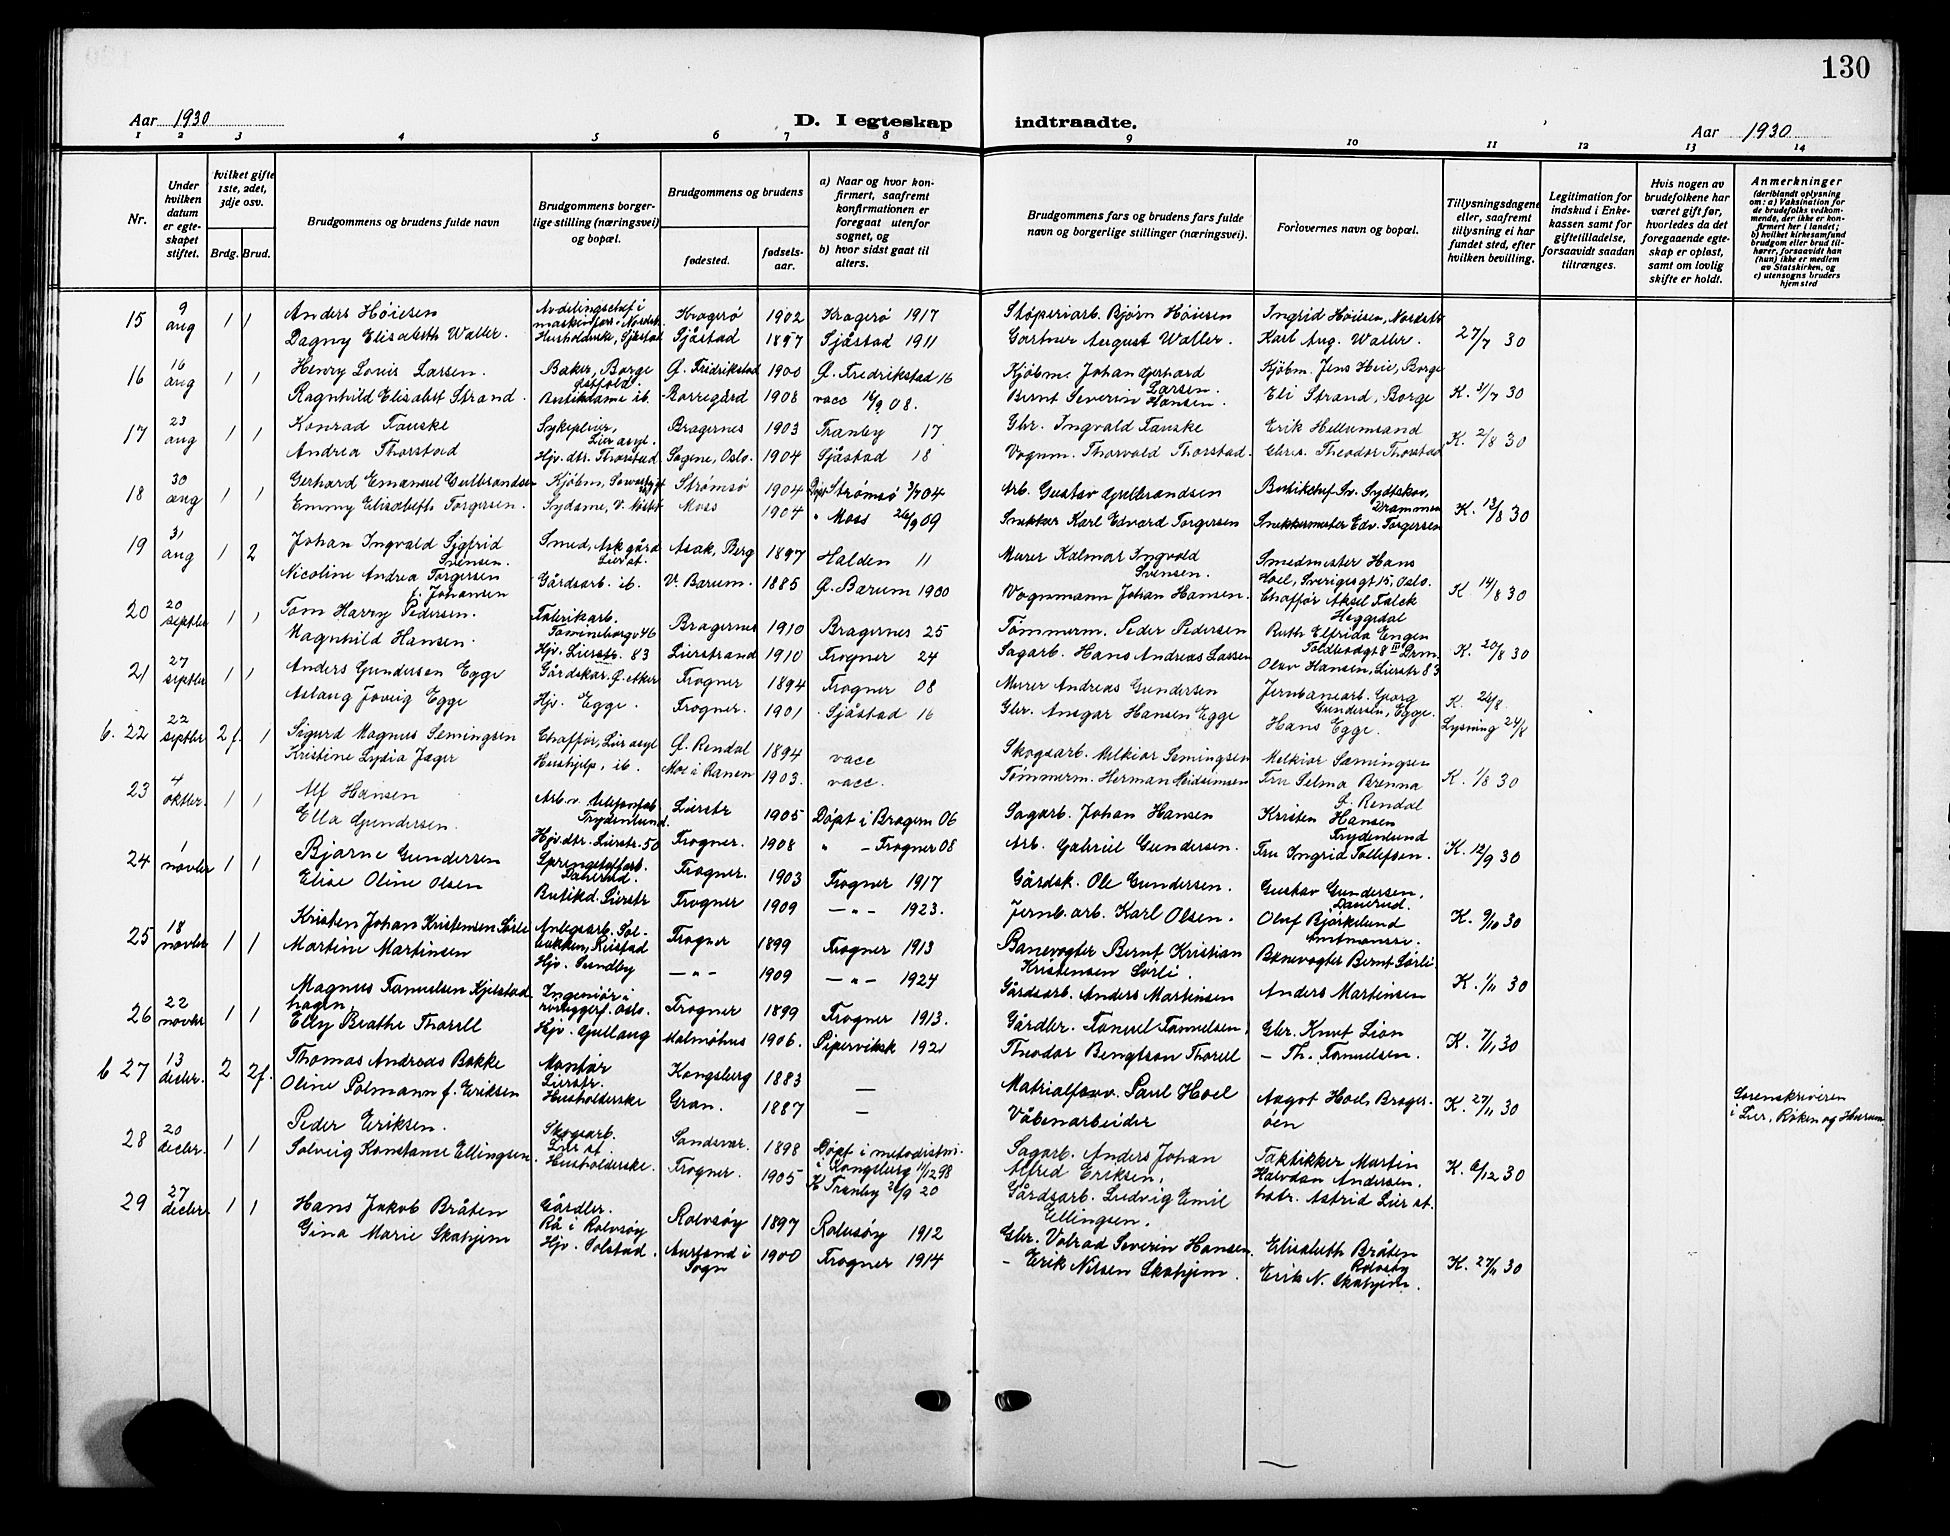 130
Aar 1930
D. I egteskap indtraadte.
Aar 1930
1 2 3 4 5 6 7 8 9 10 11 12 13 14
Nr.
Under hvilken datum er egteskapet stiftet.
hvilket gifte 1ste, 2det, 3dje osv.
Brdg. Brud.
Brudgommens og brudens fulde navn
Brudgommens borgerlige stilling (næringsvei) og bopæl.
Brudgommens og brudens
fødested.
fødselsaar.
a) Naar og hvor konfirmert, saafremt konfirmationen er foregaat utenfor sognet, og
b) hvor sidst gaat til alters.
Brudgommens fars og brudens fars fulde navn og borgerlige stillinger (næringsvei).
Forlovernes navn og bopæl.
Tillysningsdagene eller, saafremt tillysning ei har fundet sted, efter hvilken bevilling.
Legitimation for indskud i Enkekassen samt for giftetilladelse, forsaavidt saadan tiltrænges.
Hvis nogen av brudefolkene har været gift før, hvorledes da det foregaaende egteskap er opløst, samt om lovlig skifte er holdt.
Anmerkninger
(deriblandt oplysning om: a) Vaksination for de brudefolks vedkommende, der ikke er konfirmert her i landet; b) hvilket kirkesamfund brudgom eller brud tilhører, forsaavidt han (hun) ikke er medlem av Statskirken, og c) utensogns bruders hjemsted
15 9 aug 1 1 Anders Höiesen Avdelingschef i Kragerø 1902 Kragerø 1917 Støperiarb. Bjørn Höiesen Ingrid Höiesen, Nordstr 27/7 30
Dagny Elisabeth Waller. Husholderske, Sjåstad Sjåstad 1897 Sjåstad 1911 Gartner August Waller. Karl Aug. Waller.
16 16 aug 1 1 Henry Louis Larsen. Baker, Borge Østfold G. Fredrikstad 1900 G. Fredrikstad 16 Kjøbm. Johan Gerhard Larsen. Kjøbm. Jens Heie, Borge K. 31/7 30
Ragnhild Elisabet Strand. Butikdame ib. Borregård 1908 vacc 14/9 08. Bernt Severin Hansen. Eli Strand, Borge
17 23 aug 1 1 Konrad Fauske Sykepleier, Lier asyl. Bragernes 1903 Tranby 17 Gbr. Ingvald Fauske Erik Hellumsand K. 2/8 30
Andrea Thorstad Hjv. dtr. Thorstad Sagene, Oslo. 1904 Sjåstad 18 Vognm. Thorvald Thorstad. Gbr. Theodor Thorstad
18 30 aug 1 1 Gerhard Emanuel Gulbrandsen Kjøbm, Strømsø 1904 Døpt Strømsø 3/7 04 Arb. Gustav Gulbrandsen Drammen K. 13/8 30
Emmy Elisabeth Torgersen. Sydame, V. Moss 1904 " Moss 26/9 09 Snekker Karl Edvard Torgersen Snekkermester Edv. Torgersen
19 31 aug 1 2 Johan Ingvald Sigfrid Svensen. Smed, Ask gård Lier st. Asak, Berg 1897 Halden 11 Murer Kalmar Ingvold Svensen. Smedmester Hans Hoel, Sverigesgt 15, Oslo. K 14/8 30
Nicoline Andrea Torgersen f. Johansen Gårdsarb. ib. V. Bærum. 1885 G. Bærum 1900 Vognmann Johan Hansen. Chaffør Aksel Falck Heggedal
20 20 septbr 1 1 Tom Harry Pedersen. Fabrikarb. Bragernes 1910 Bragernes 25 Tømmerm. Peder Pedersen Ruth Elfrida Engen Toldbodgt 8 III Drm. K. 20/8 30
Magnhild Hansen. Hjv. Lierstr. 83 Lierstrand 1910 Frogner 24 Sagarb. Hans Andreas Larsen Olav Hansen, Lierstr 83
21 27 septbr 1 1 Anders Gundersen Egge Gårdskar. Ø. Aker Frogner 1894 Frogner 08 Murer Andreas Gundersen Jernbanearb. Georg Gundersen, Egge. K. 26/8
Aslaug Joveig Egge Hjv. Egge. Frogner. 1901 Sjåstad 16 Gbr. Ansgar Hansen Egge Hans Egge. Lysning 24/8
b. 22 22 septbr 2 f. 1 Sigurd Magnus Semingsen Chaffør, Lier asyl G. Rendal 1894 vacc Skogsarb. Melkior Semingsen Melkior Semingsen K. 1/8 30
Kristine Lydia Jager Hushjelp, ib. Mo i Ranen 1903. vacc. Tømmerm. Herman Fru Selma Brenna G. Rendal
23 4 oktbr. 1 1 Alf Hansen Arb. v. Frydenlund. Lierstr 1905 Døpt i Bragern 06 Sagarb. Johan Hansen Kristen Hansen Frydenlund K. 12/9 30
Ella Gundersen. Hjv. dtr. Lierstr. 50 Frogner. 1908 " - Frogner 08 Arb. Gabriel Gundersen. Fru Ingrid Tollefsen.
24 1 novbr 1 1 Bjarne Gundersen Sprengstoffarb. Frogner. 1903 Frogner 1917 Gårdsk. Ole Gundersen. Gustav Gundersen, K. 9/10 30
Elise Oline Olsen Butikd. Lierstr Frogner 1909 - " - 1923. Jernb. arb. Karl Olsen. Olaf Björkelund
25 18 novbr 1 1 Kristen Johan Kristensen Sørlie Anlegsarb. Frogner 1899 Frogner 1913 Banevogter Bernt Kristian Kristensen Sørli. Banevogter Bernt Sørli. K. 1/11 30
Martine Martinsen Hjv. Sundby - " - 1909 - " - 1924 Gårdsarb. Anders Martinsen Anders Martinsen
26 22 novbr 1 1 Magnus Fanuelsen Kjelstadhagen, Ingeniør i Oslo. Frogner 1899 Frogner 1913. Gårdbr. Fanuel Fanuelsen, Gbr. Knut Lian K. 7/11 30
Elly Beathe Thorell Hjv. Gullaug Malmøhus 1906. Pipervika 1921 Theodor Bengtson Thorell - Th. Fanuelsen.
b 27 13 decbr. 2 2f. Thomas Andreas Bakke Montør Lierstr. Kongsberg 1883 — Matrialforv. Paul Hoel Aagot Hoel, Bragerøen K. 27/11 30 Sorenskriveren i Lier, Røken og Hurum
Oline Polmann f. Eriksen Husholderske Gran. 1887 — Våbenarbeider
28 20 decbr. 1 1 Peder Eriksen. Skogsarb. Lier st Sandsvær. 1898 Døpt i metodistm. i Kongsberg 11/12 98 Sagarb. Anders Johan Alfred Eriksen, Taktikker Martin Halvdan Andersen. K. 6/12 30
Solveig Konstance Ellingsen Husholderske. Frogner. 1905 K Tranby 26/9 20 Gårdsarb. Ludvig Emil Ellingsen. hstr. Astrid Lier st.
29 27 decbr 1 1 Hans Jakob Bråten Gårdbr. Rå i Rolvsøy Rolvsøy 1897 Rolvsøy 1912 Gbr. Valrad Severin Hansen. Elisabeth Bråten Rolvsøy K. 27/11 30
Gina Marie Skahjem Hjv. Solstad. Aurland i Sogn 1900 Frogner 1914 - Erik Nilsen Skahjem. Erik N. Skahjem.